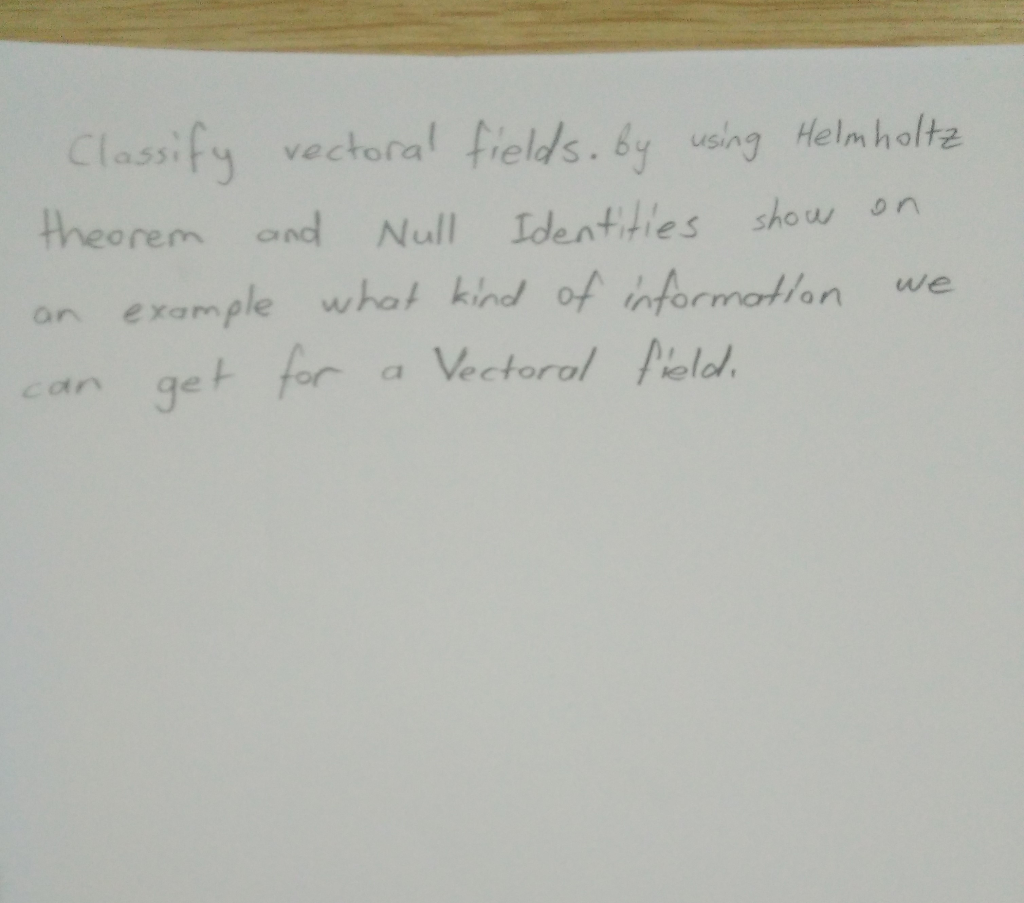 Classify vectoral fields. by using Helmholtz
theorem and Null Identities show on
an example what kind of information we
can get for a Vectoral field.